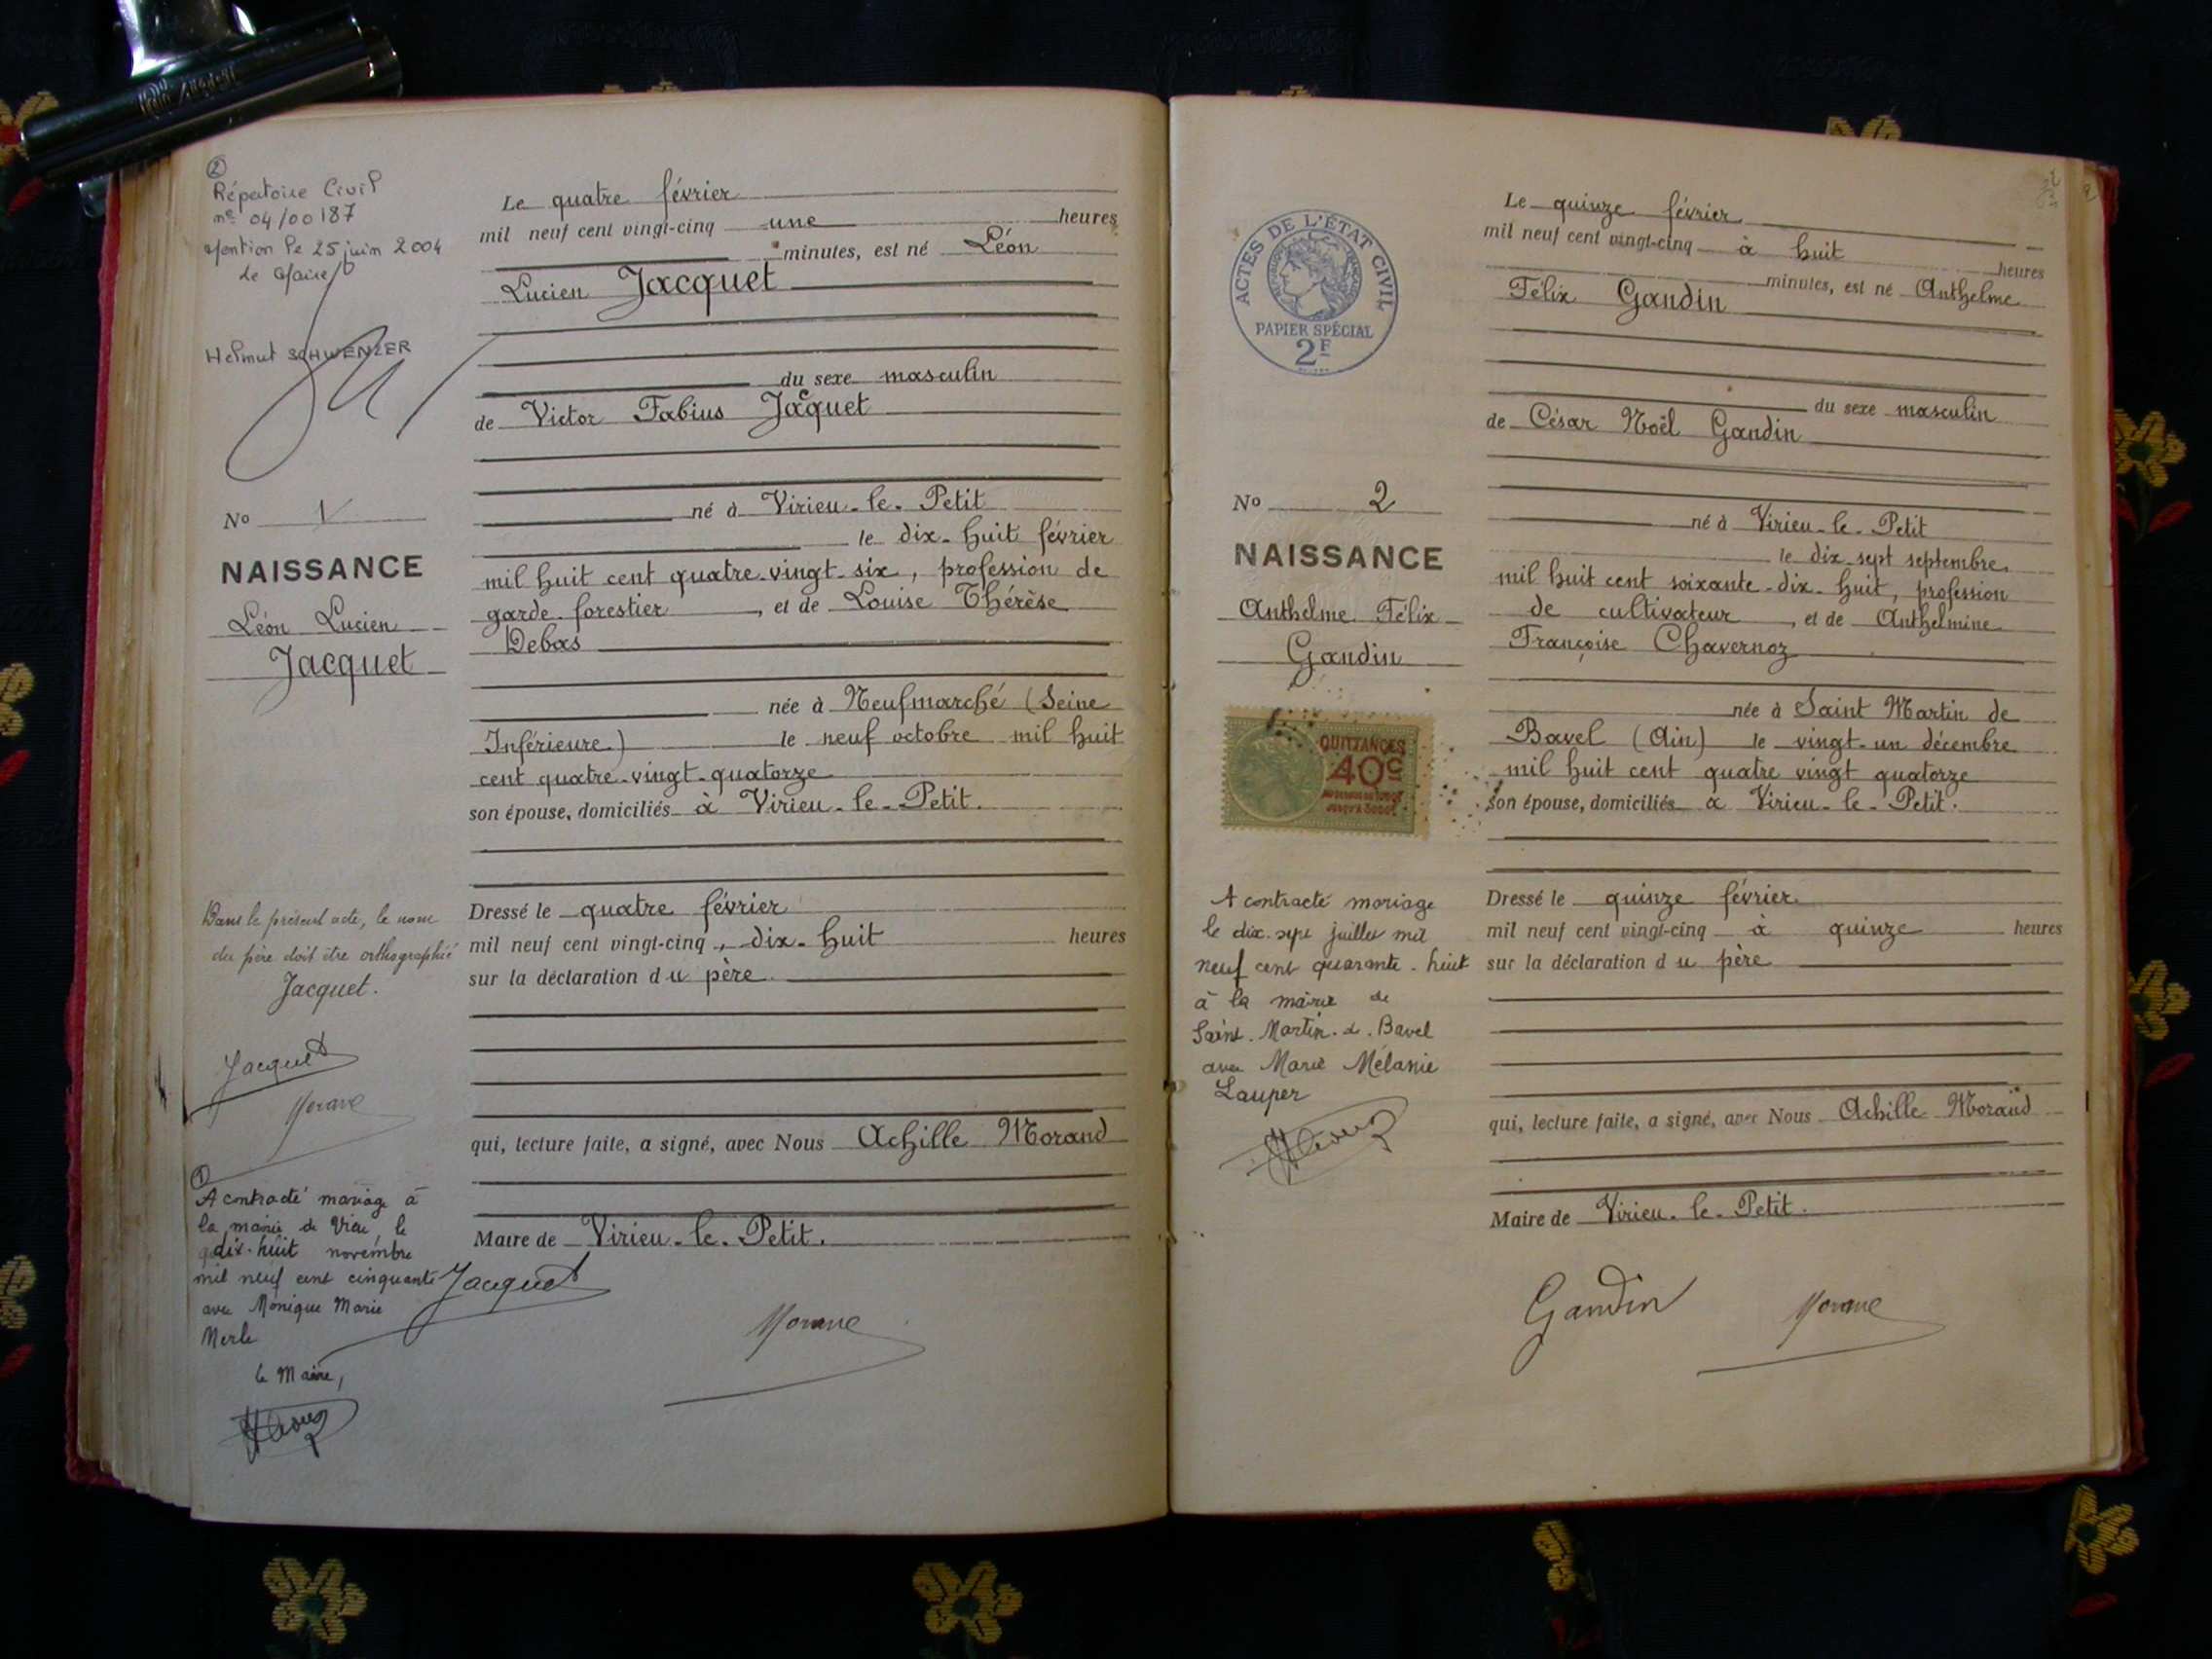 ②
Répertoire Civil
n° 04/00187
Mention le 25 juin 2004
Le Maire
Helmut SCHWENZER
No 1
NAISSANCE
Léon Lucien
Jacquet
Dans le présent acte, le nom
du père doit être orthographié
Jacquet.
Jacquet
①
A contracté mariage à
la mairie de Vieu le
dix-huit novembre
mil neuf cent cinquante
avec Monique Marie
Merle
le Maire,
Le quatre février
mil neuf cent vingt-cinq une heures
minutes, est né Léon
Lucien Jacquet
du sexe masculin
de Victor Fabius Jacquet
né à Virieu-le-Petit
le dix-huit février
mil huit cent quatre-vingt-six, profession de
garde forestier, et de Louise Thérèse
Debas
née à Neufmarché (Seine
Inférieure) le neuf octobre mil huit
cent quatre-vingt-quatorze
son épouse, domiciliés à Virieu-le-Petit.
Dressé le quatre février
mil neuf cent vingt-cinq, dix-huit heures
sur la déclaration du père
qui, lecture faite, a signé, avec Nous Achille Morand
Maire de Virieu-le-Petit.
Jacquet
ACTES DE L'ÉTAT CIVIL
PAPIER SPÉCIAL
2F
No 2
NAISSANCE
Anthelme Félix
Gandin
QUITTANCES
40c
A contracté mariage
le dix-sept juillet mil
neuf cent quarante-huit
à la mairie de
Saint-Martin-d-Bavel
avec Marie Mélanie
Lauper
Le quinze février
mil neuf cent vingt-cinq à huit
heures
minutes, est né Anthelme
Félix Gandin
du sexe masculin
de César Noël Gandin
né à Virieu-le-Petit
le dix-sept septembre
mil huit cent soixante-dix-huit, profession
de cultivateur, et de Anthelmine
Françoise Chavernoz
née à Saint Martin de
Bavel (Ain) le vingt-un décembre
mil huit cent quatre vingt quatorze
son épouse, domiciliés à Virieu-le-Petit.
Dressé le quinze février
mil neuf cent vingt-cinq à quinze heures
sur la déclaration du père
qui, lecture faite, a signé, avec Nous Achille Morand
Maire de Virieu-le-Petit.
Gandin